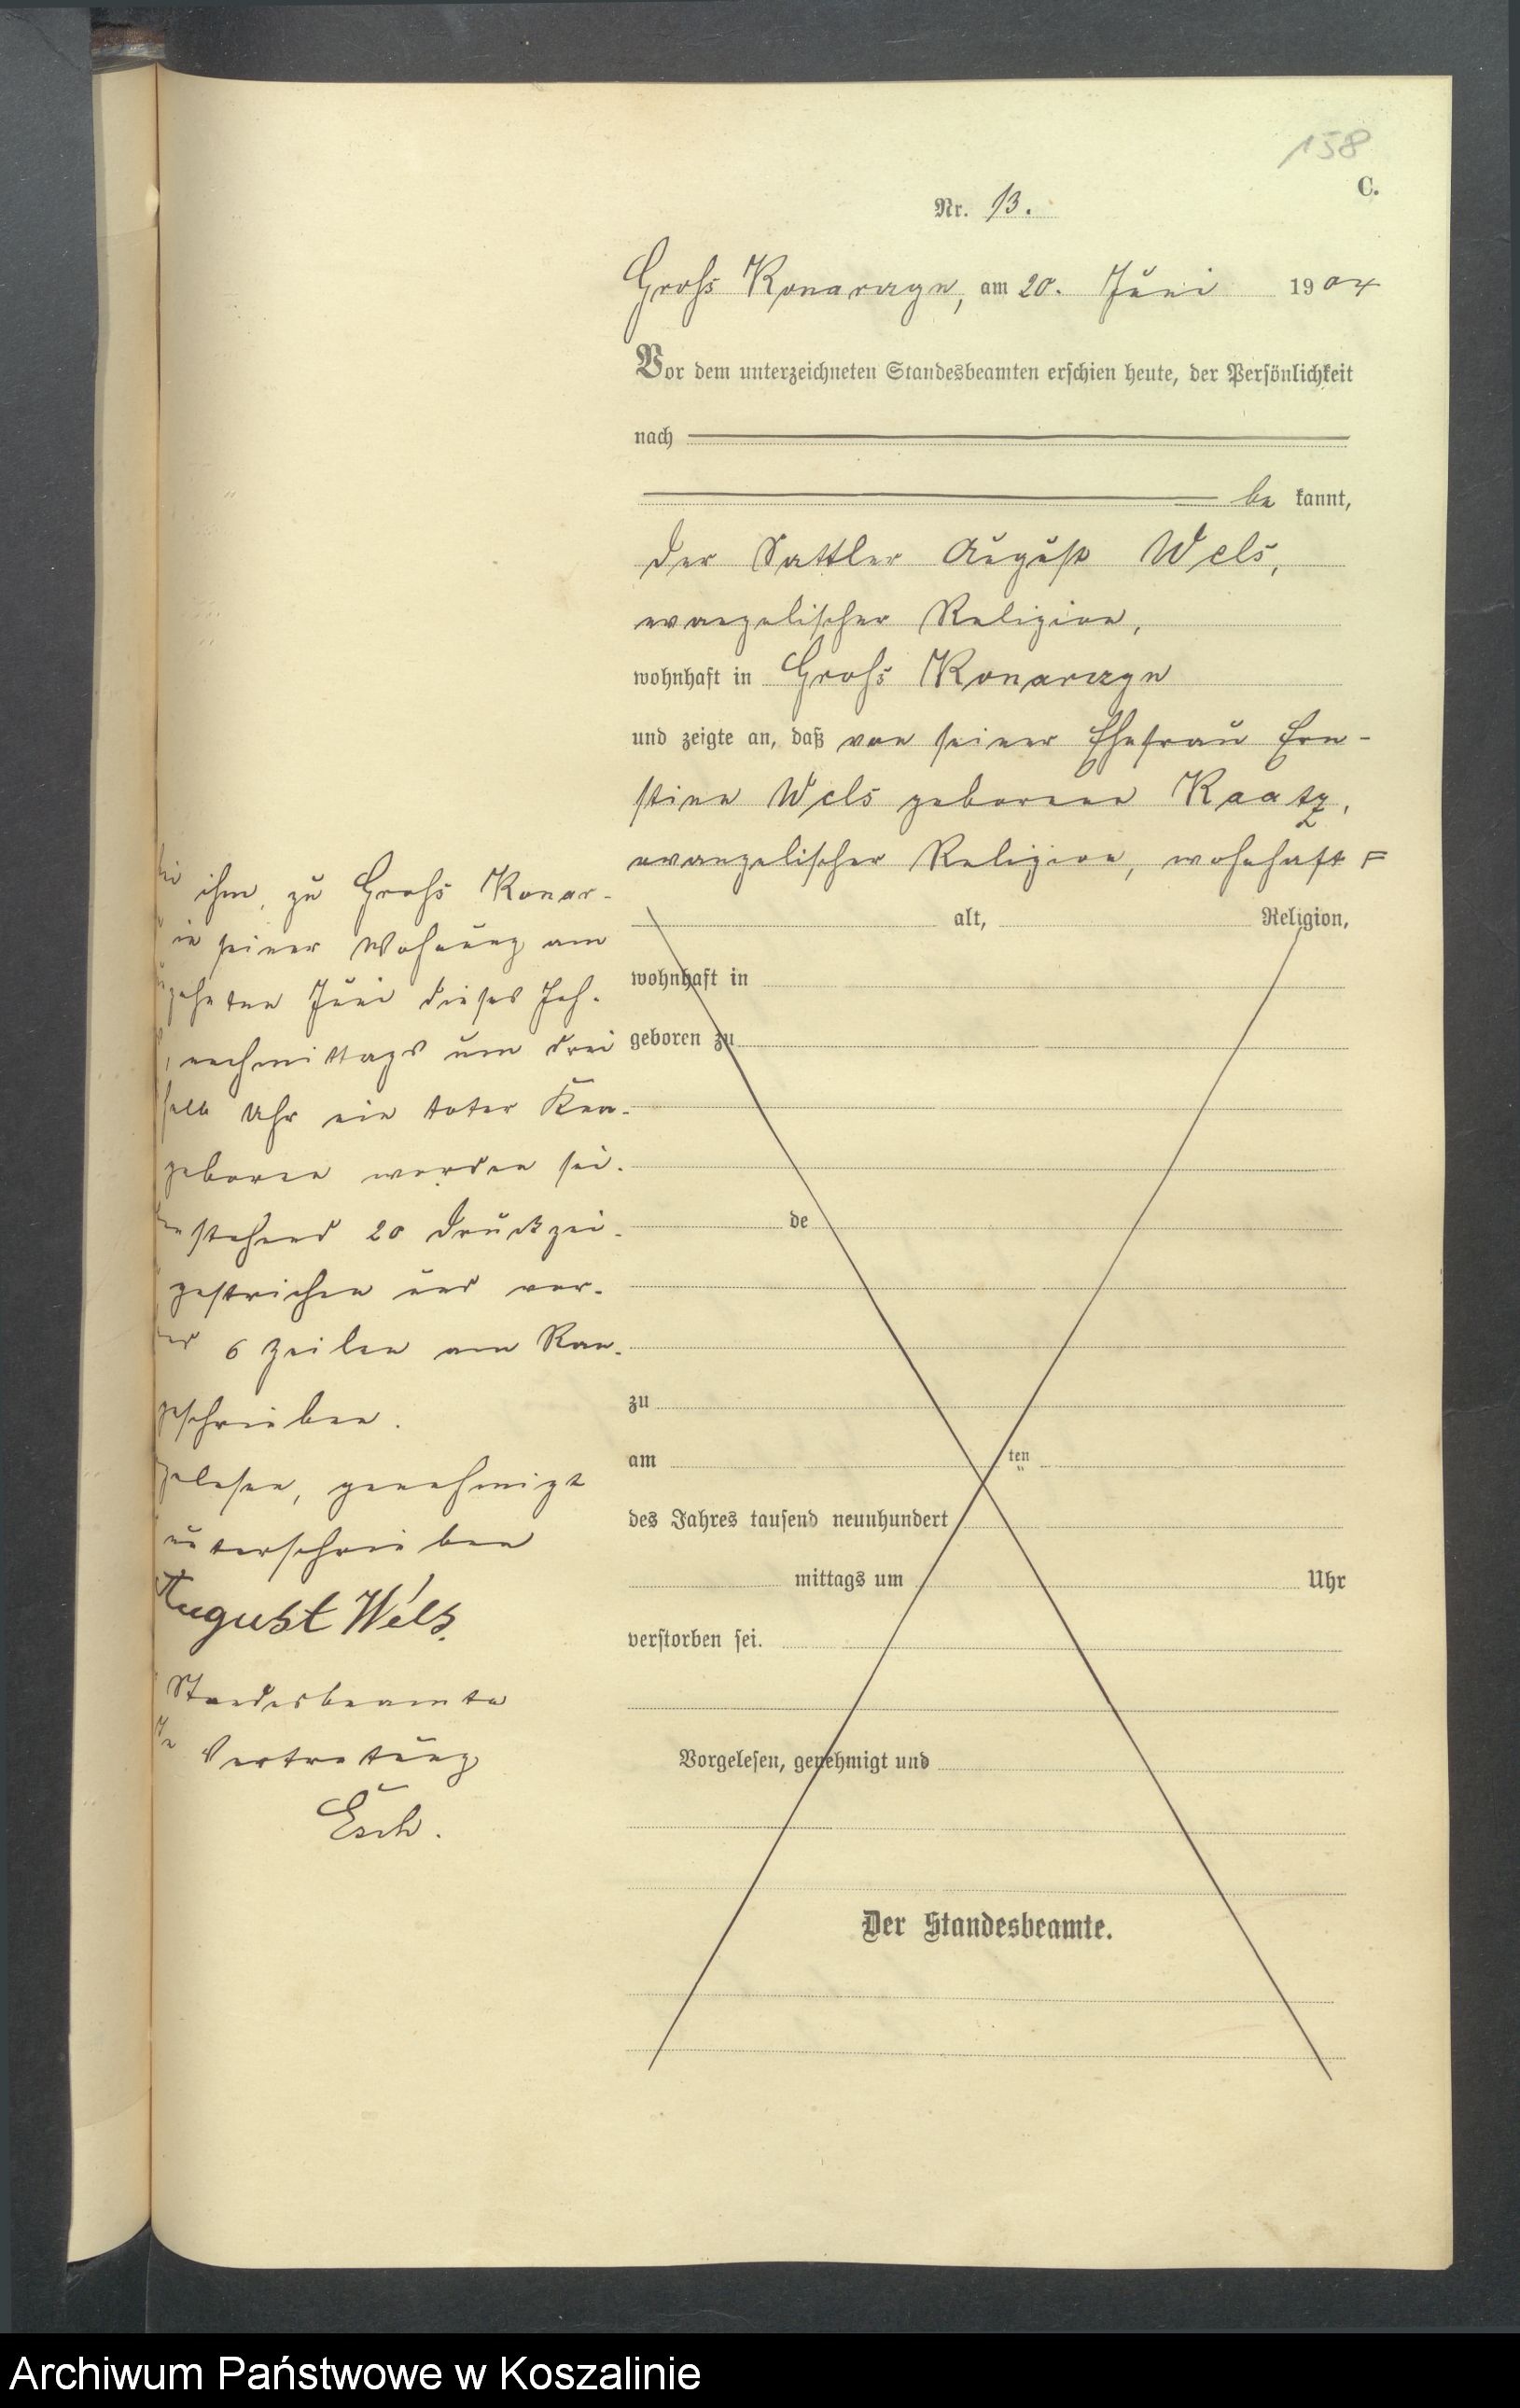 158
C.
Nr. 13.
Groß Konarzyn, am 20. Juni 1904
Vor dem unterzeichneten Standesbeamten erschien heute, der Persönlichkeit
nach
be kannt,
der Sattler August Wels,
evangelischer Religion,
wohnhaft in Groß Konarzyn
und zeigte an, daß von seiner Ehefrau Ern-
stine Wels geborene Kaatz,
evangelischer Religion, wohnhaft
bei ihm, zu Groß Konar-
in seiner Wohnung am
zehnten Juni dieses Jah-
nachmittags um drei
halb Uhr ein toter Kna-
geboren worden sei.
stehend 20 Druckzei-
gestrichen und vor-
6 Zeilen am Ran-
geschrieben.
gelesen, genehmigt
unterschrieben
August Wels.
Standesbeamte
In Vertretung
Esch.
alt, Religion,
wohnhaft in
geboren zu
de
zu
am ten
des Jahres tausend neunhundert
mittags um Uhr
verstorben sei.
Vorgelesen, genehmigt und
Der Standesbeamte.
Archiwum Państwowe w Koszalinie